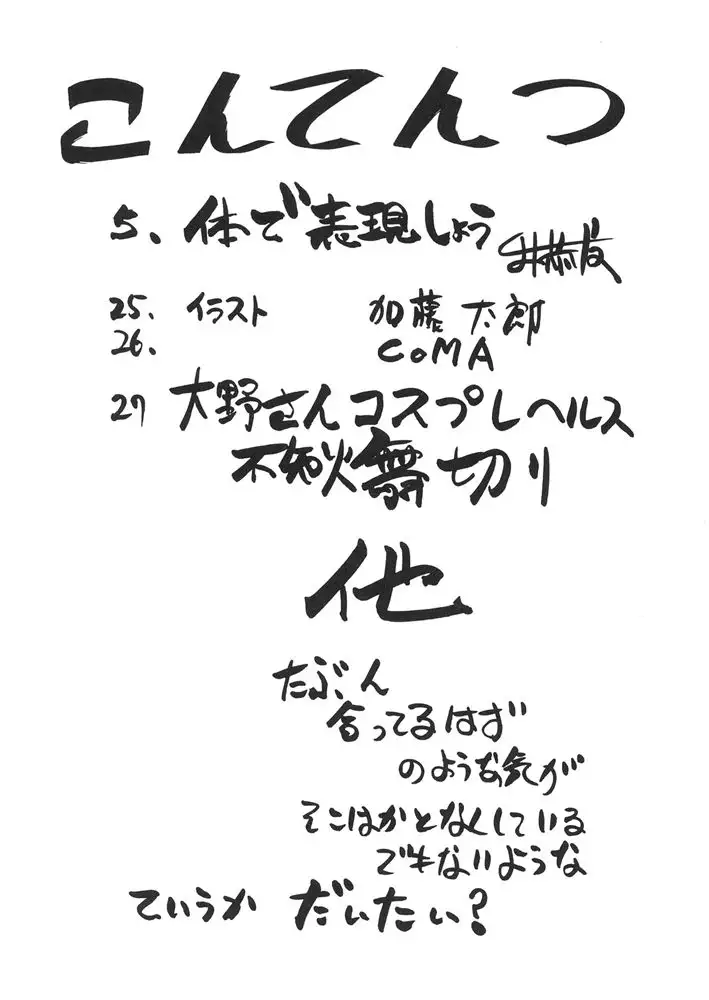 こんてんつ
5、体で表現しよう
25、イラスト 加藤太郎
26、 CoMA
27 大野さんコスプレヘルス
不知火舞切り
他
たぶん
合ってるはず
のような気が
そこはかとなくしている
でもないような
ていうか だいたい?